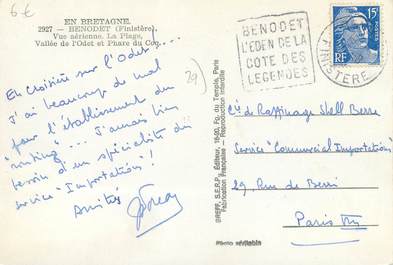 6 €
EN BRETAGNE.
2927 - BENODET (Finistère).
Vue aérienne. La Plage,
Vallée de l'Odet et Phare du Coq.
29)
En croisière sur l'Odet ....
J'ai beaucoup de mal
pour l'établissement du
"rooting" ... J'aurais bien
besoin d'un spécialiste du
service - Importations !
Amitiés
BREFF, S.E.R.P., Éditeur, 1640, Fg. du Temple, Paris
Fabrication Française Reproduction Interdite
Photo véritable
BENODET
L'EDEN DE LA
COTE DES
LEGENDES
FINISTERE
15F
RF
Cie de Raffinage Shell Berre
Service "Commercial Importations"
29, Rue de Berri
Paris